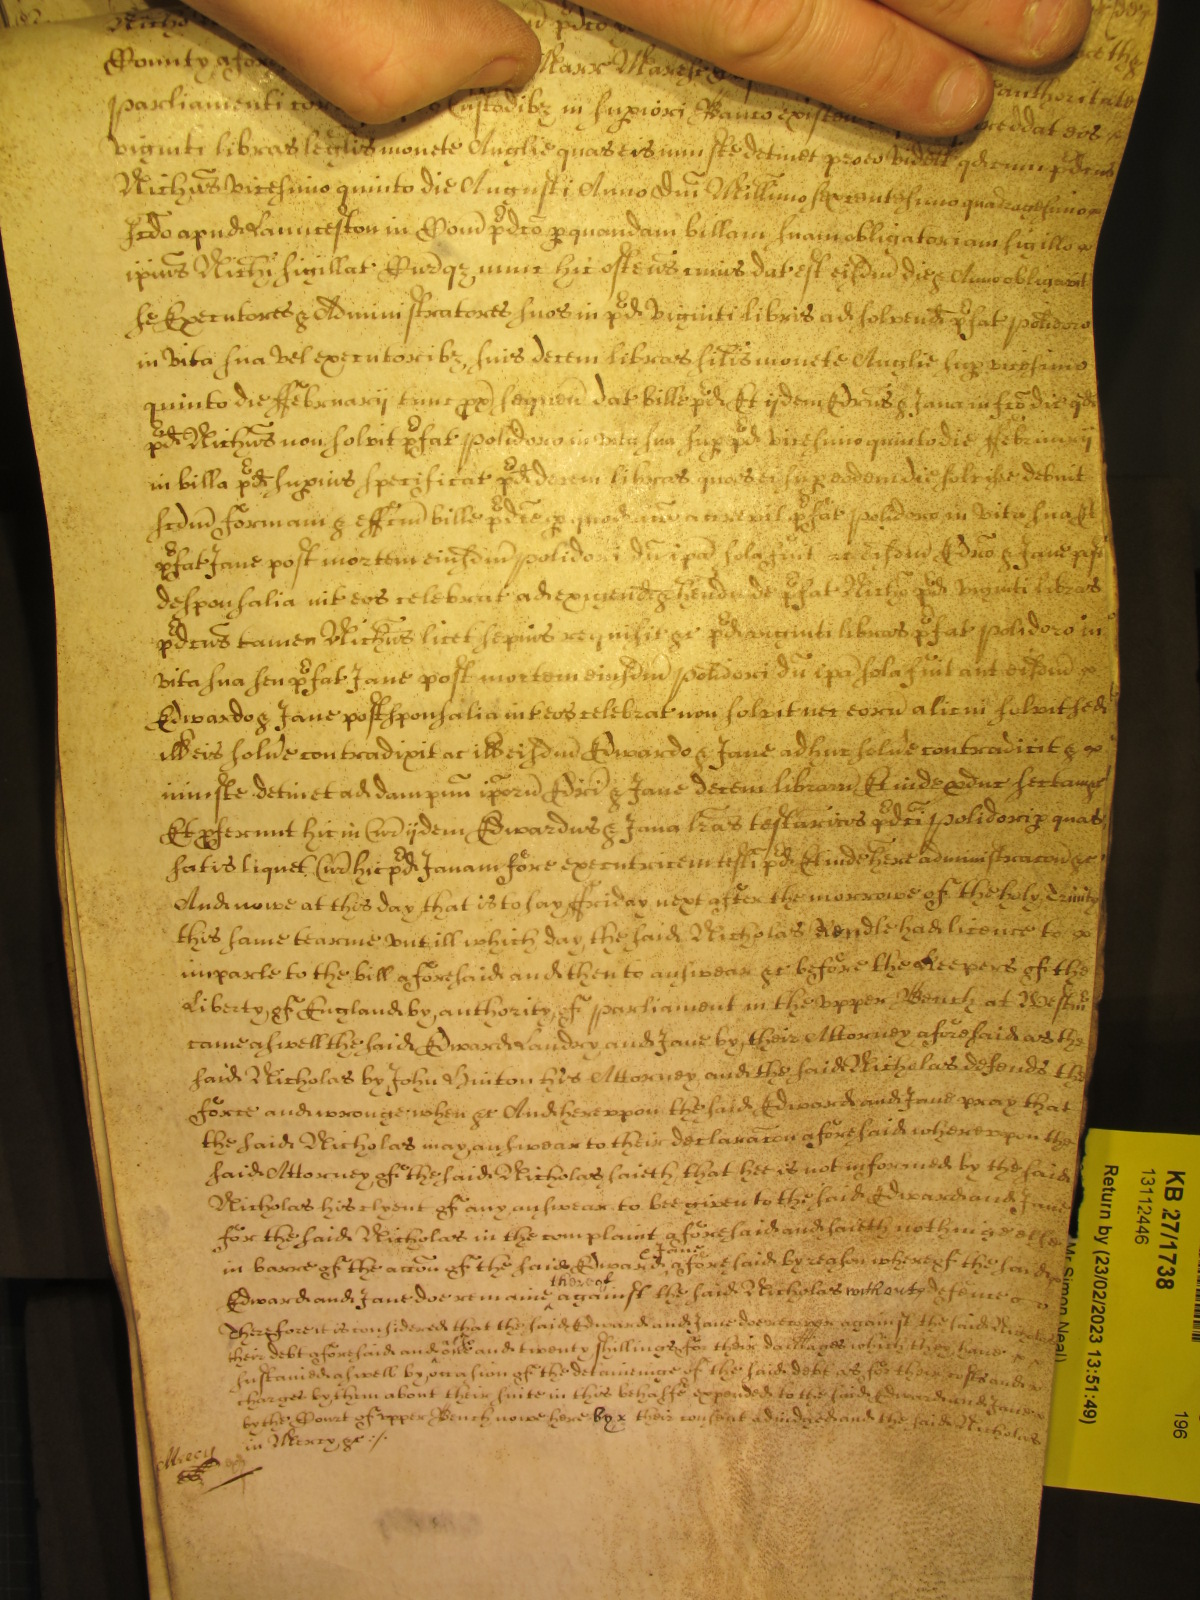 County afor Marr Maresc
authoritate
parliamenti Custodibz in supiori Banco existen reddat eos
viginti libras leglis monete Anglie quas eis iniuste detinet pro eo videlt qd cum pdcus
Nichus vicesimo quinto die Augusti Anno Dni Millimo sexcentesimo quadragesimo
scdo apud Launceston in Com pdco p quandam billam suam obligatoriam sigillo
ipius Nichi sigillat Curqz nunc hic ostens cuius dat est eisdm die & Anno obligavit
se Executores & Administratores suos in pd viginti libris ad solvend pfat Polidoro
in vita sua vel executoribz suis decem libras silis monete Anglie sup vicesimo
quinto die ffebruarij tunc px sequen dat bille pd Et ijdem Edrus & Jana in fco dic qd
pd Nichus non solvit pfat Polidoro in vita sua sup pd vicesimo quinto die ffebruarij
in billa pd supius specificat pd decem libras quas ei sup eodem die solvisse debuit
scdm formam & effcum bille pdce p quod accõ accrevit pfat Polidoro in vita sua et
pfat Jane post mortem eiusdm Polidori du ipa sola fuit ac eisdm Edro & Jane post
desponsalia int eos celebrat ad exigend & hend de pfat Nicho pd viginti libras
pdcus tamen Nichus licet sepius requisit &c pd viginti libras pfat Polidoro in
vita sua seu pfat Jane post mortem eiusdm Polidori du ipa sola fuit aut eisdm
Edwardo & Jane post sponsalia int eos celebrat non solvit nec eorum alicui solvit sed
ill eis solvere contradixit ac ill eisdm Edwardo & Jane adhuc solvere contradicit &
iniuste detinet ad dampnu ipor Edri & Jane decem librar Et inde producunt sectam &c
Et pferunt hic in Cur ijdem Edwardus & Jana lras testamentarias pdci Polidori p quas
satis liquet Cur hic pd Janam fore executricem testi pd Et inde here administracon &c
And nowe at this day that is to say ffriday next after the morrowe of the holy Trinity
this same tearme untill which day the said Nicholas Rendle had licence to
imparle to the bill aforesaid and then to answear &c before the Keepers of the
Liberty of England by authority of parliament in the upper Bench at Westm
came aswell the said Edward Landry and Jane by their Attorney aforesaid as the
said Nicholas by John Hinton his Attorney and the said Nicholas defends the
force and wronge when &c And hereupon the said Edward and Jane pray that
the said Nicholas may answear to their declaracon aforesaid whereupon the
said Attorney of the said Nicholas saieth that hee is not informed by the said
Nicholas his clyent of any answear to bee given to the said Edward and Jane
for the said Nicholas in the complaint aforesaid and saieth nothinge else
in barre of the accon of the said Edward & Jane aforesaid by reason whereof the said
Edward and Jane doe remaine thereof against the said Nicholas without defence
Therefore it is considered that the said Edward and Jane doe recover against the said Nicholas
their debt aforesaid and one and twenty shillings for their damages which they have
sustained aswell by occasion of the deteininge of the said debt as for their costs and
charges by them about their suite in this behalfe expended to the said Edward and Jane
by the Court of upper Bench nowe here by their consent adiudged and the said Nicholas
in Mercy &c
Mercy
KB 27/1738
13112446
196
Return by (23/02/2023 13:51:49)
M Simon Neal)